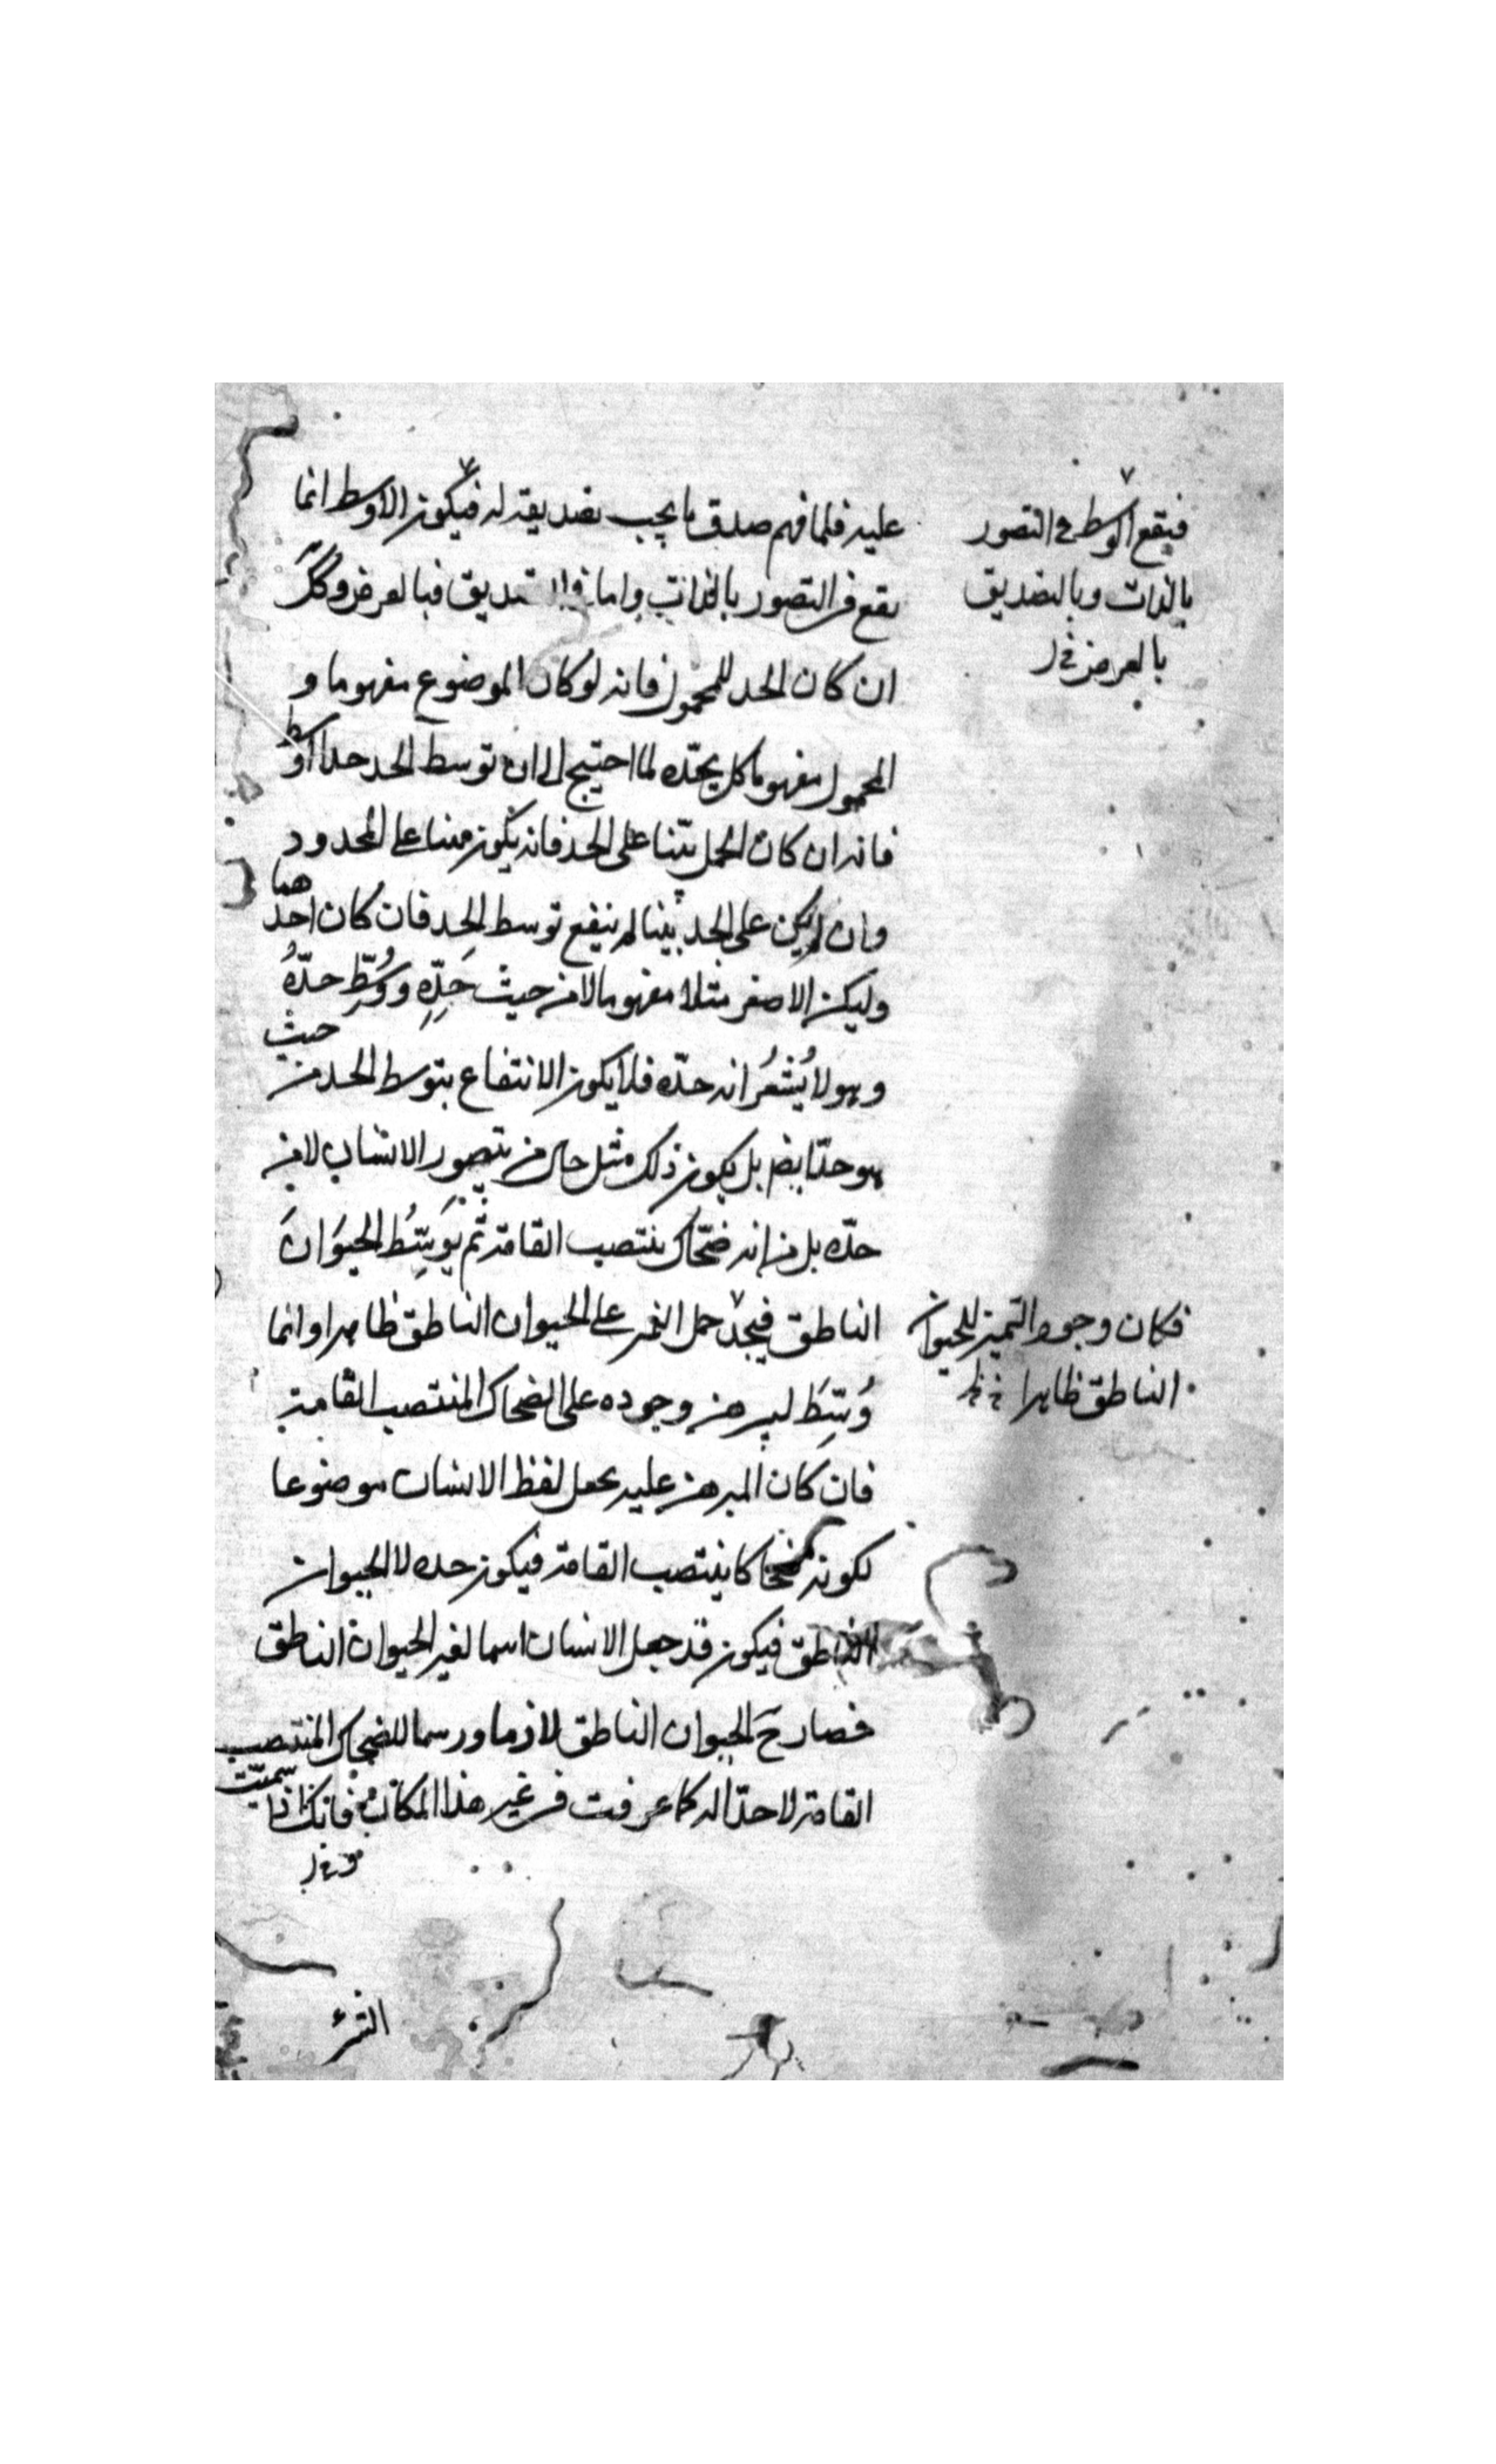 عليه فلما فهم صدق ما يجب تصديقه له فيكون الاوسط انما
يقع في التصور بالذات واما في التصديق فبالعرض وكك
ان كان الحد للمحمول فانه لو كان الموضوع مفهوما و
المحمول مفهوما كل بحدّه لما احتيج الى ان توسط الحد حدا اوسط
فانه ان كان الحمل بيّنا على الحد فانه يكون مبينا على المحدود
وان لم يكن على الحد بينا لم ينفع توسط الحد فان كان احدهما
وليكن الاصغر مثلا مفهوما لا من حيث حَدِّهِ ووُسِّط حدّهُ
وهو لا يُشعُر انه حدّه فلا يكون الانتفاع بتوسط الحد من حيث
هو حدّ ايضا بل يكون ذلك مثل حال من يتصور الانسان لا من
حدّه بل من انه ضحّاك منتصب القامة ثم يُوَسِّطُ الحيَوَانَ
الناطق فيجد حمل التميز على الحيوان الناطق ظاهرا وانما
وُسِّطَ ليبرهن وجوده على الضحاك المنتصب القامة
فان كان المبرهن عليه يجعل لفظ الانسان موضوعا
لكونه ضحاكا ينتصب القامة فيكون حده لا الحيوان
الناطق فيكون قد جعل الانسان اسما لغير الحيوان الناطق
فصار ح الحيوان الناطق لازما ورسما للضحاك المنتصب
القامة لا حدّا له كما عرفت في غير هذا المكان فانك اذا سميّت
فيقع الوسط في التصور
بالذات وبالتصديق
بالعرض خ ل
فكان وجود التميز للحيوان
الناطق ظاهرا